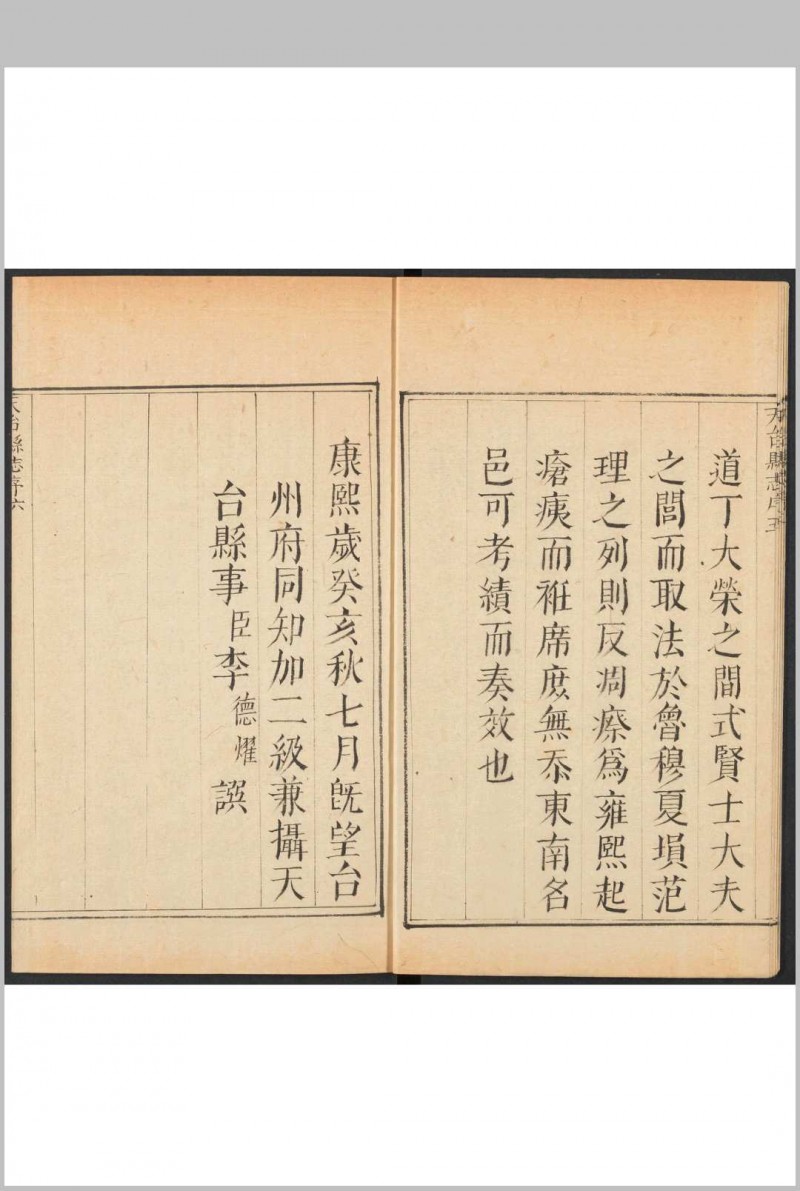 天台縣志序五
道丁大榮之間式賢士大夫
之閭而取法於魯穆夏塤范
理之列則反凋瘵爲雍熙起
瘡痍而袵席庶無忝東南名
邑可考績而奏效也
康熙歲癸亥秋七月旣望台
州府同知加二級兼攝天
台縣事臣李德燿譔
天台縣志序六